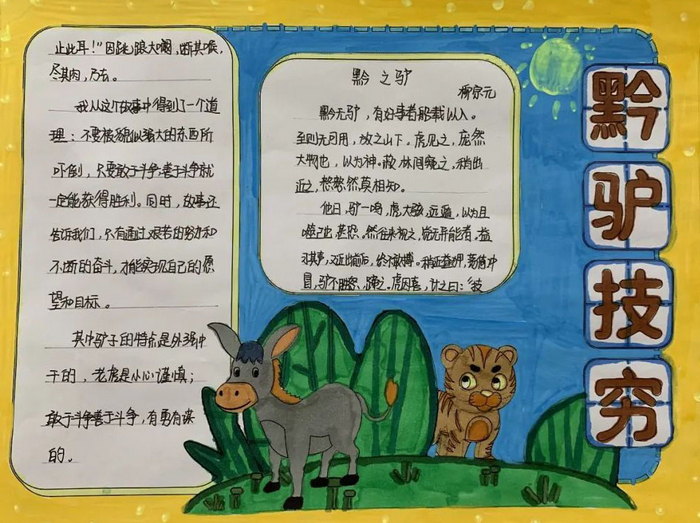 黔驴技穷
黔之驴
柳宗元
黔无驴，有好事者船载以入。
至则无可用，放之山下。虎见之，庞然
大物也，以为神。蔽林间窥之，稍出
近之，慭慭然莫相知。
他日，驴一鸣，虎大骇，远遁，以为且
噬己也，甚恐。然往来视之，觉无异能者，益
习其声，又近出前后，终不敢搏。稍近益狎，荡倚冲
冒，驴不胜怒，蹄之。虎因喜，计之曰：“技
止此耳！”因跳踉大㘎，断其喉，
尽其肉，乃去。
我从这个故事中得到了一个道
理：不要被貌似强大的东西所
吓倒，只要敢于斗争善于斗争就
一定能获得胜利。同时，故事还
告诉我们，只有通过艰苦的努力和
不断的奋斗，才能实现自己的愿
望和目标。
其中驴子的特点是外强中
干的，老虎是小心谨慎；
敢于斗争善于斗争，有勇有谋
的。